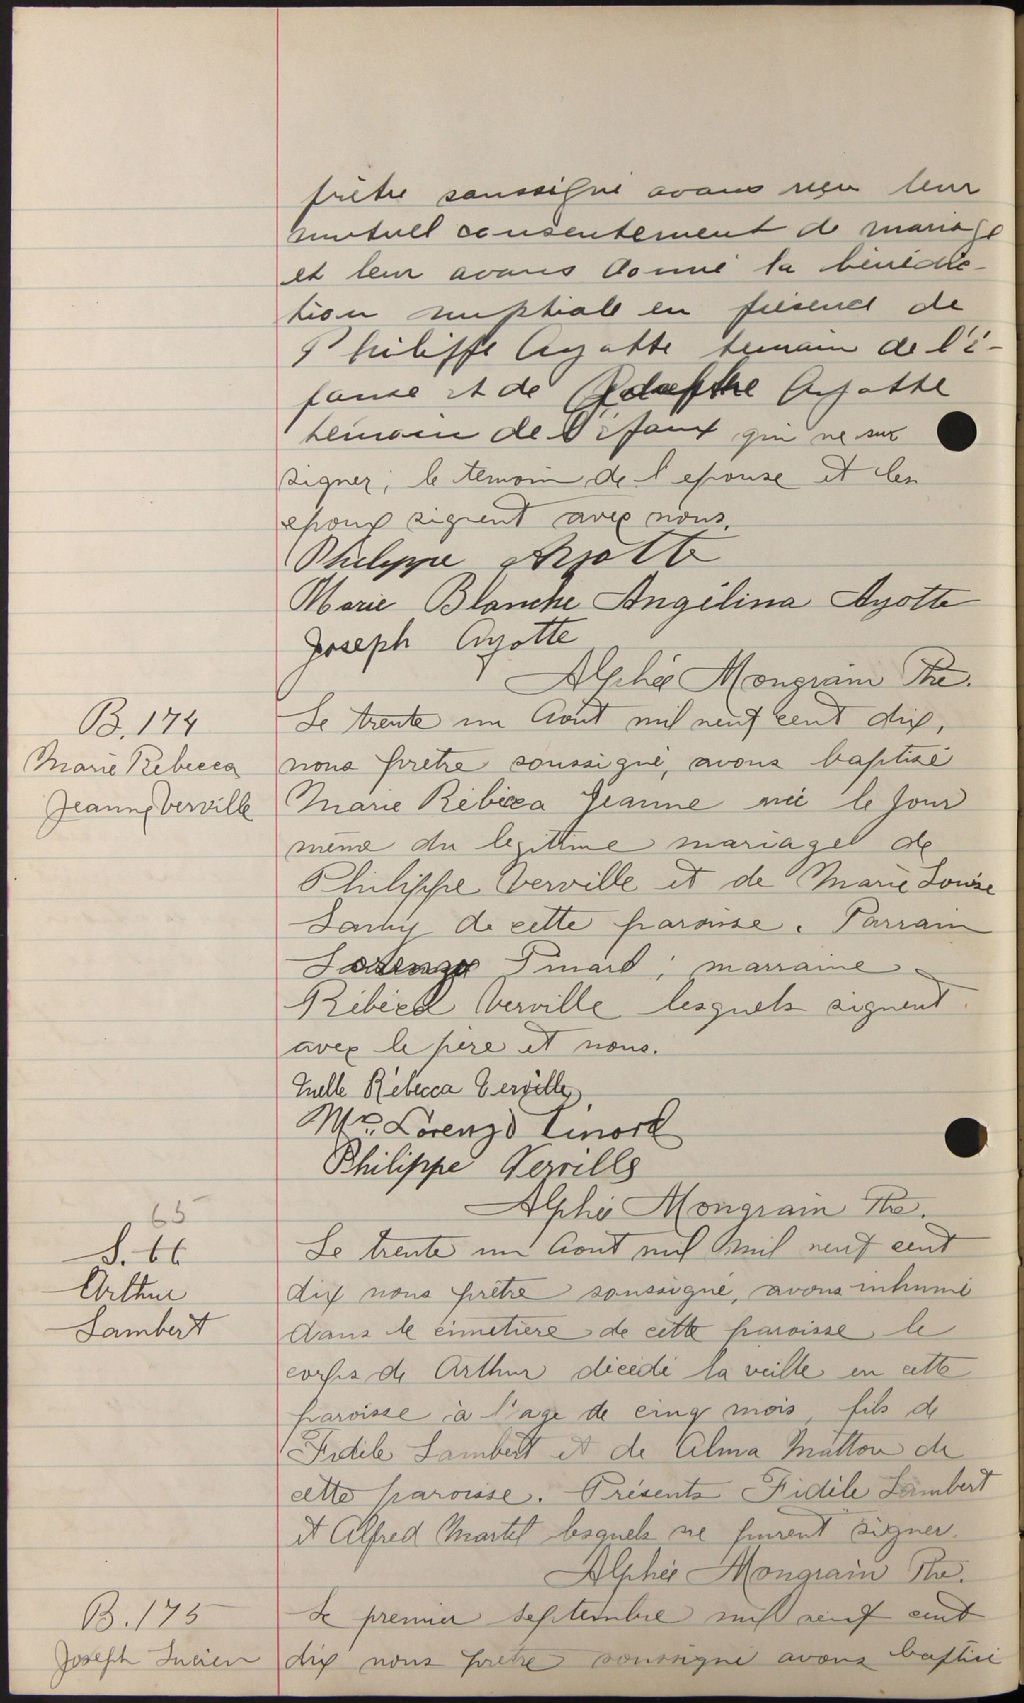 prêtre soussigné avons reçu leur
mutuel consentement de mariage
et leur avons donné la bénédic-
tion nuptiale en présence de
Philippe Ayotte temoin de l'é-
pouse et de Ayotte
témoin de l'époux qui ne sut
signer; le temoin de l'epouse et les
epoux signent avec nous.
Philippe Ayotte
Marie Blanche Angélina Ayotte
Joseph Ayotte
Alphée Mongrain Ptre.
B. 174
Marie Rebecca
Jeanne Verville
Le trente un Aout mil neuf cent dix,
nous prêtre soussigné, avons baptisé
Marie Rébécca Jeanne née le jour
même du legitime mariage de
Philippe Verville et de Marie Louise
Lamy de cette paroisse. Parrain
Lorenzo Pinard; marraine
Rébécca Verville lesquels signent
avec le père et nous.
Melle Rébecca Verville
Mr. Lorenzo Pinard
Philippe Verville
Alphée Mongrain Ptre.
65
S. 66
Arthur
Lambert
Le trente un Aout mil mil neuf cent
dix nous prêtre soussigné, avons inhumé
dans le cimetière de cette paroisse le
corps de Arthur décédé la veille en cette
paroisse à l'age de cinq mois, fils de
Fidèle Lambert et de Alma Matton de
cette paroisse. Présents Fidèle Lambert
et Alfred Martel lesquels ne purent signer.
Alphée Mongrain Ptre.
B. 175
Joseph Lucien
Le premier septembre mil neuf cent
dix nous prêtre soussigné avons baptisé